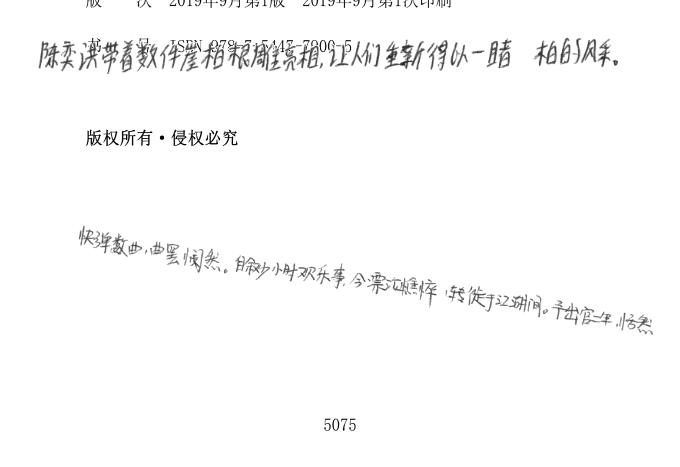 版 次 2019年9月第1版 2019年9月第1次印刷
书 号 ISBN 978-7-5447-7906-5
陈奕洪带着数件崖柏根雕亮相,让人们重新得以一睹 柏的风采。
版权所有·侵权必究
快弹数曲,曲罢悯然。自叙少小时欢乐事,今漂沦憔悴,转徙于江湖间。予出官二年,恬然
5075